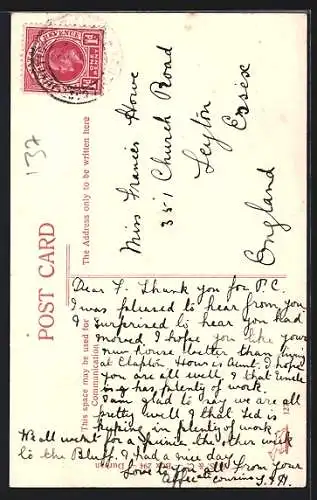 REVENUE
137
POST CARD
The Address only to be written here
This space may be used for
Communication
Miss Frances Howe
351 Church Road
Leyton
Essex
England
Dear F. Thank you for P.C.
I was pleased to hear from you
& surprised to hear you had
moved, I hope you like your
new house better than living
at Clapton How is Aunt. I hope
you are all well, & that Emele
ing has plenty of work.
I am glad to say we are all
pretty well & that Ted is
keeping in plenty of work
We all went for a the other week
to the Bluff, & had a nice day.
Love to you all from your
Affecate cousins